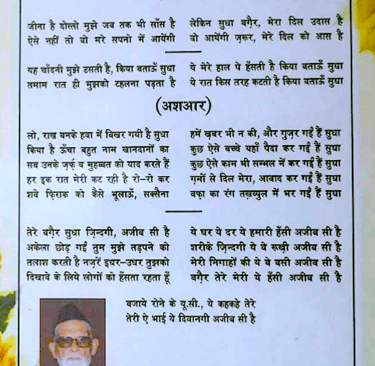 जीना है दोस्तो मुझे जब तक भी साँस है लेकिन सुधा बग़ैर, मेरा दिल उदास है
ऐसे नहीं तो वो मरे सपनो में आयेंगी वो आयेंगी ज़रूर, मेरे दिल को आस है
यह चाँदनी मुझे डसती है, किया बताऊँ सुधा ये मेरे हाल पे हँसती है किया बताऊँ सुधा
तमाम रात ही मुझको टहलना पड़ता है ये रात किस तरह कटती है किया बताऊँ सुधा
(अशआर)
लो, राख बनके हवा में बिखर गयी है सुधा हमें ख़बर भी न की, और गुज़र गई हैं सुधा
किया है ऊँचा बहुत नाम खानदानों का कुछ ऐसे बच्चे यहाँ पैदा कर गई हैं सुधा
सब उनके ज़र्फ़ व मुहब्बत को याद करते हैं कुछ ऐसे काम भी सम्भल में कर गई हैं सुधा
हर इक रात मेरी कट रही है रो-रो कर ग़मों से दिल मेरा, आबाद कर गई हैं सुधा
शबे फ़िराक़ को कैसे भूलाऊँ, सक्सैना वफ़ा का रंग तख़य्युल में भर गई हैं सुधा
तेरे बग़ैर सुधा ज़िन्दगी, अजीब सी है ये घर ये दर ये हमारी हँसी अजीब सी है
अकेला छोड़ गईं तुम मुझे तड़पने को शरीके ज़िन्दगी ये बे रूख़ी अजीब सी है
तलाश करती है नज़रें इधर-उधर तुझको मेरी निगाहों की ये बे बसी अजीब सी है
दिखावे के लिये लोगों को हँसता रहता हूँ बग़ैर तेरे मेरी ये हँसी अजीब सी है
बजाये रोने के यू.सी., ये कहकहे तेरे
तेरी ऐ भाई ये दियानगी अजीब सी है